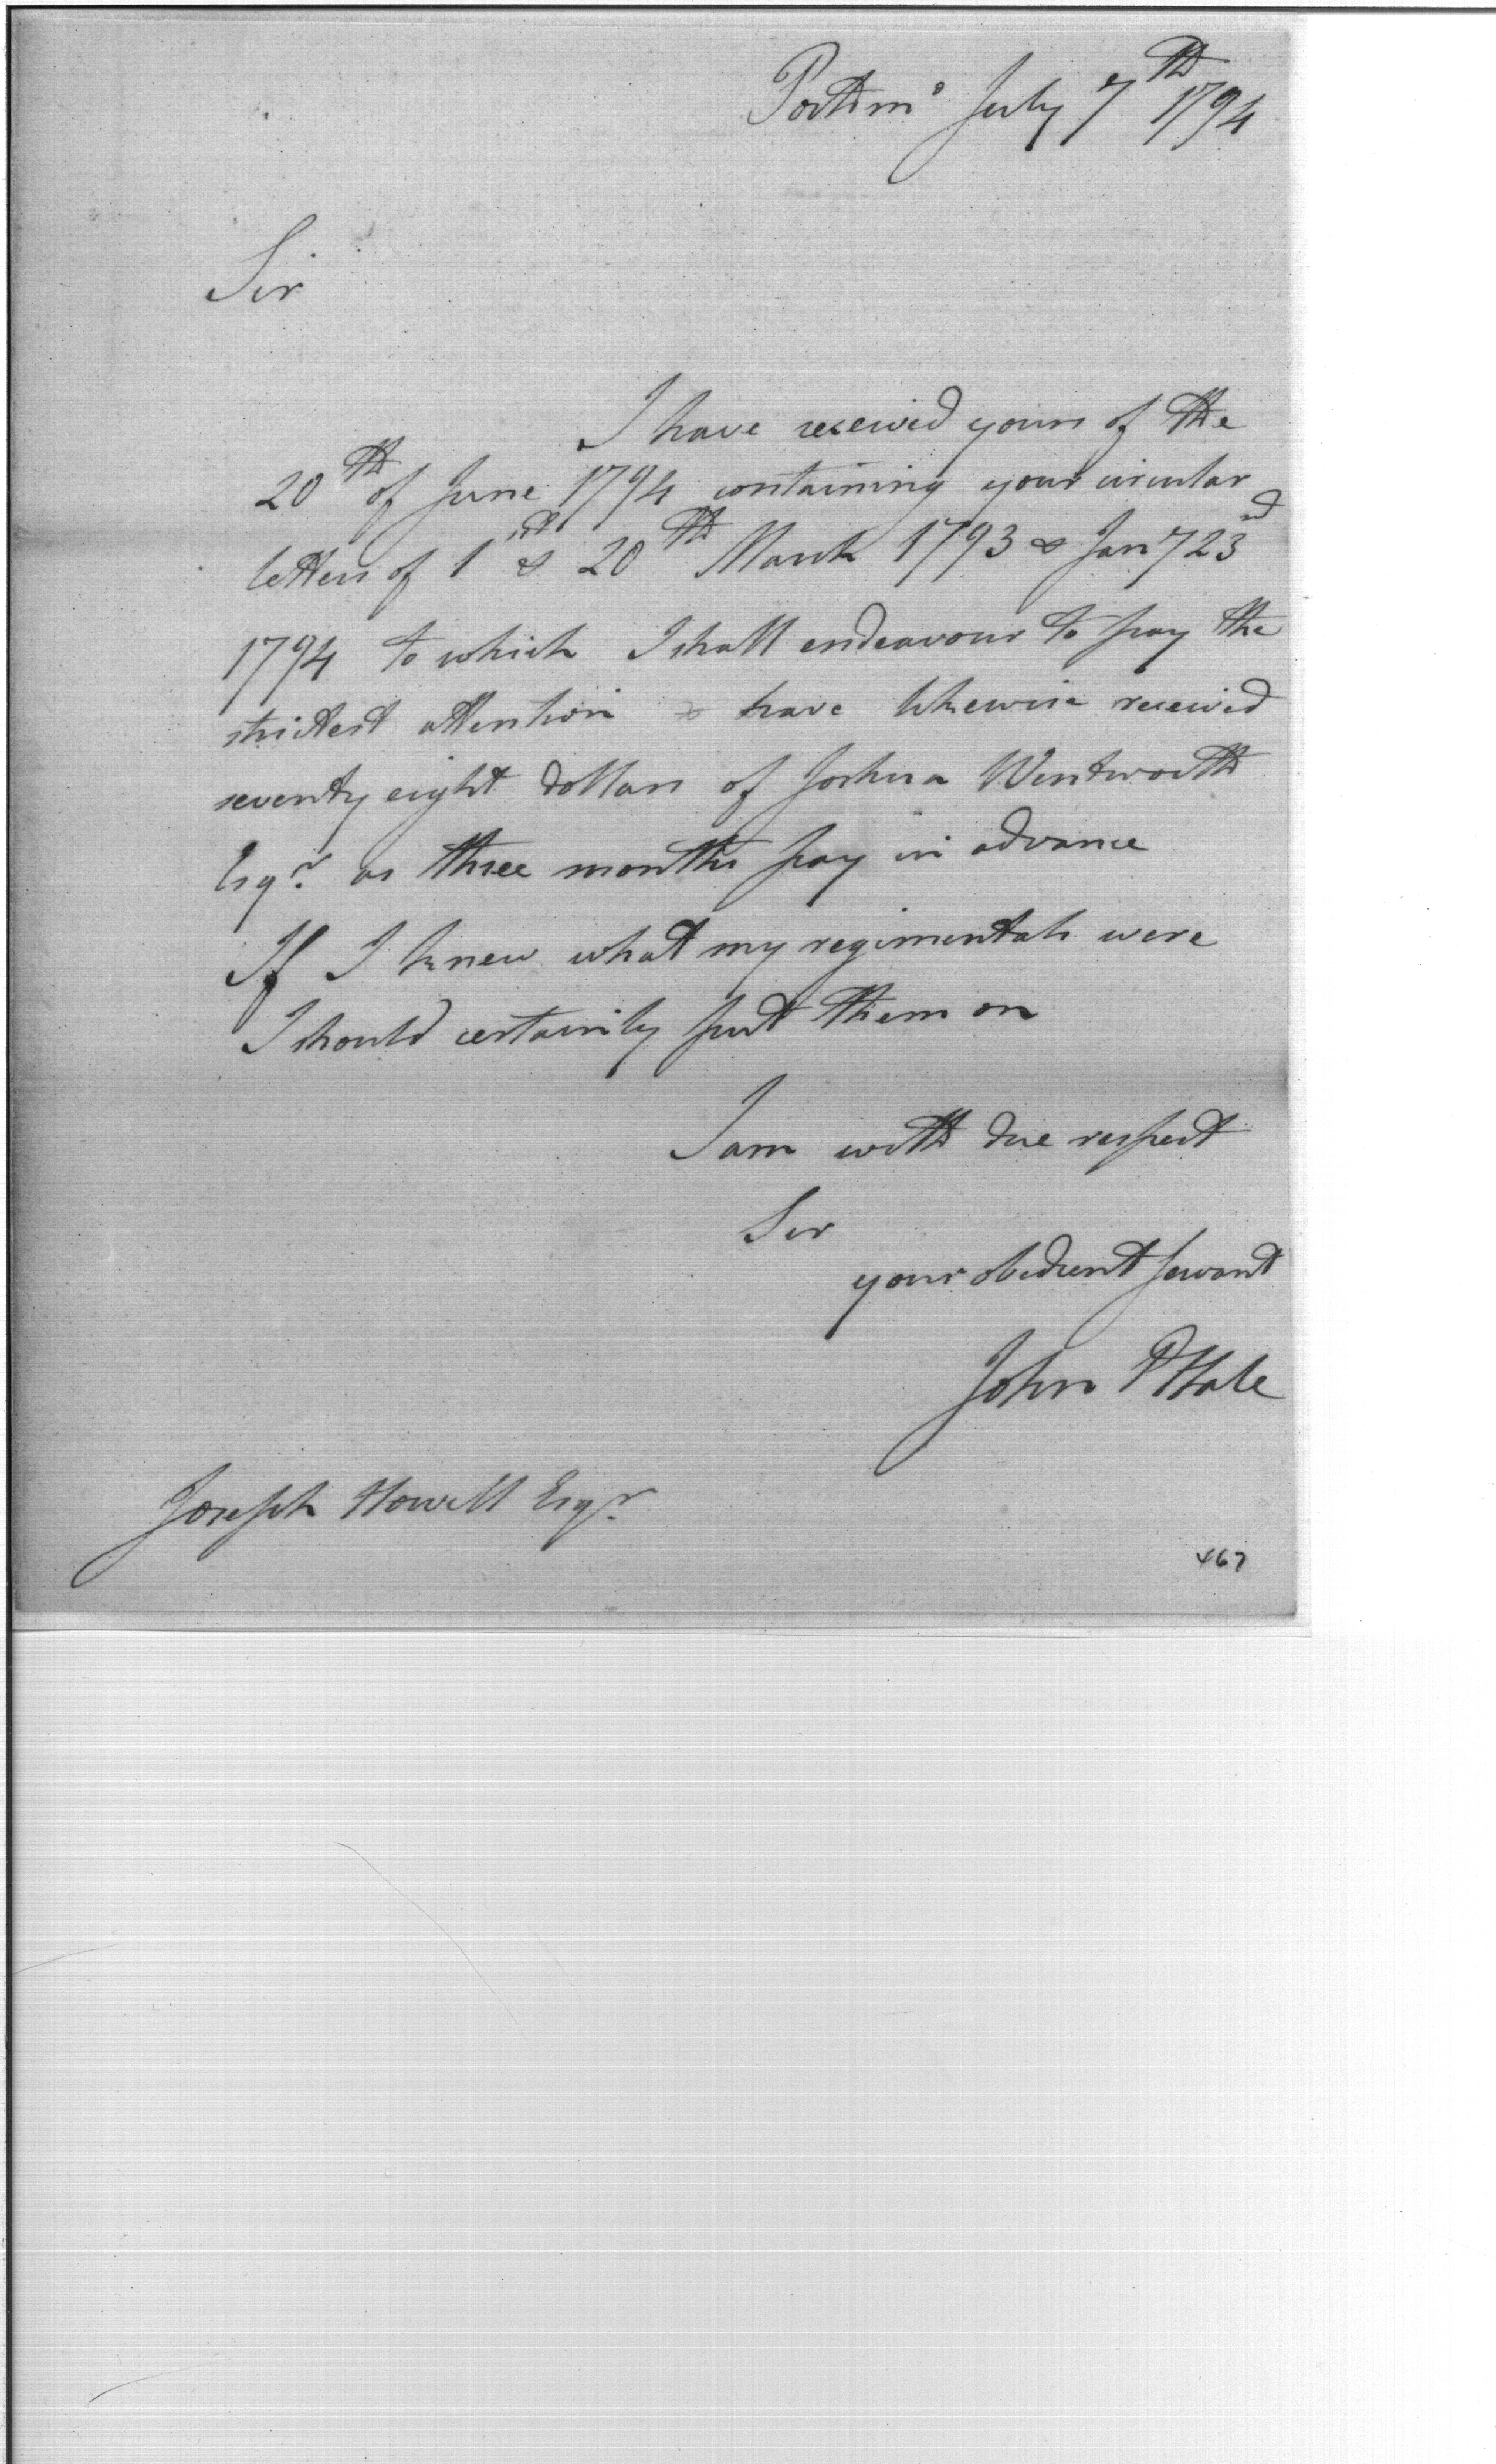 Portsmo July 7th 1794
Sir
I have received yours of the
20th of June 1794 containing your circular
letters of 1st & 20th March 1793 & Jany 23rd
1794 to which I shall endeavour to pay the
strictest attention & have likewise received
seventy eight dollars of Joshua Wentworth
Esqr. as three months pay in advance
If I knew what my regimentals were
I should certainly put them on
I am with due respect
Sir
your obedient servant
John P Hale
Joseph Howell Esqr.
467